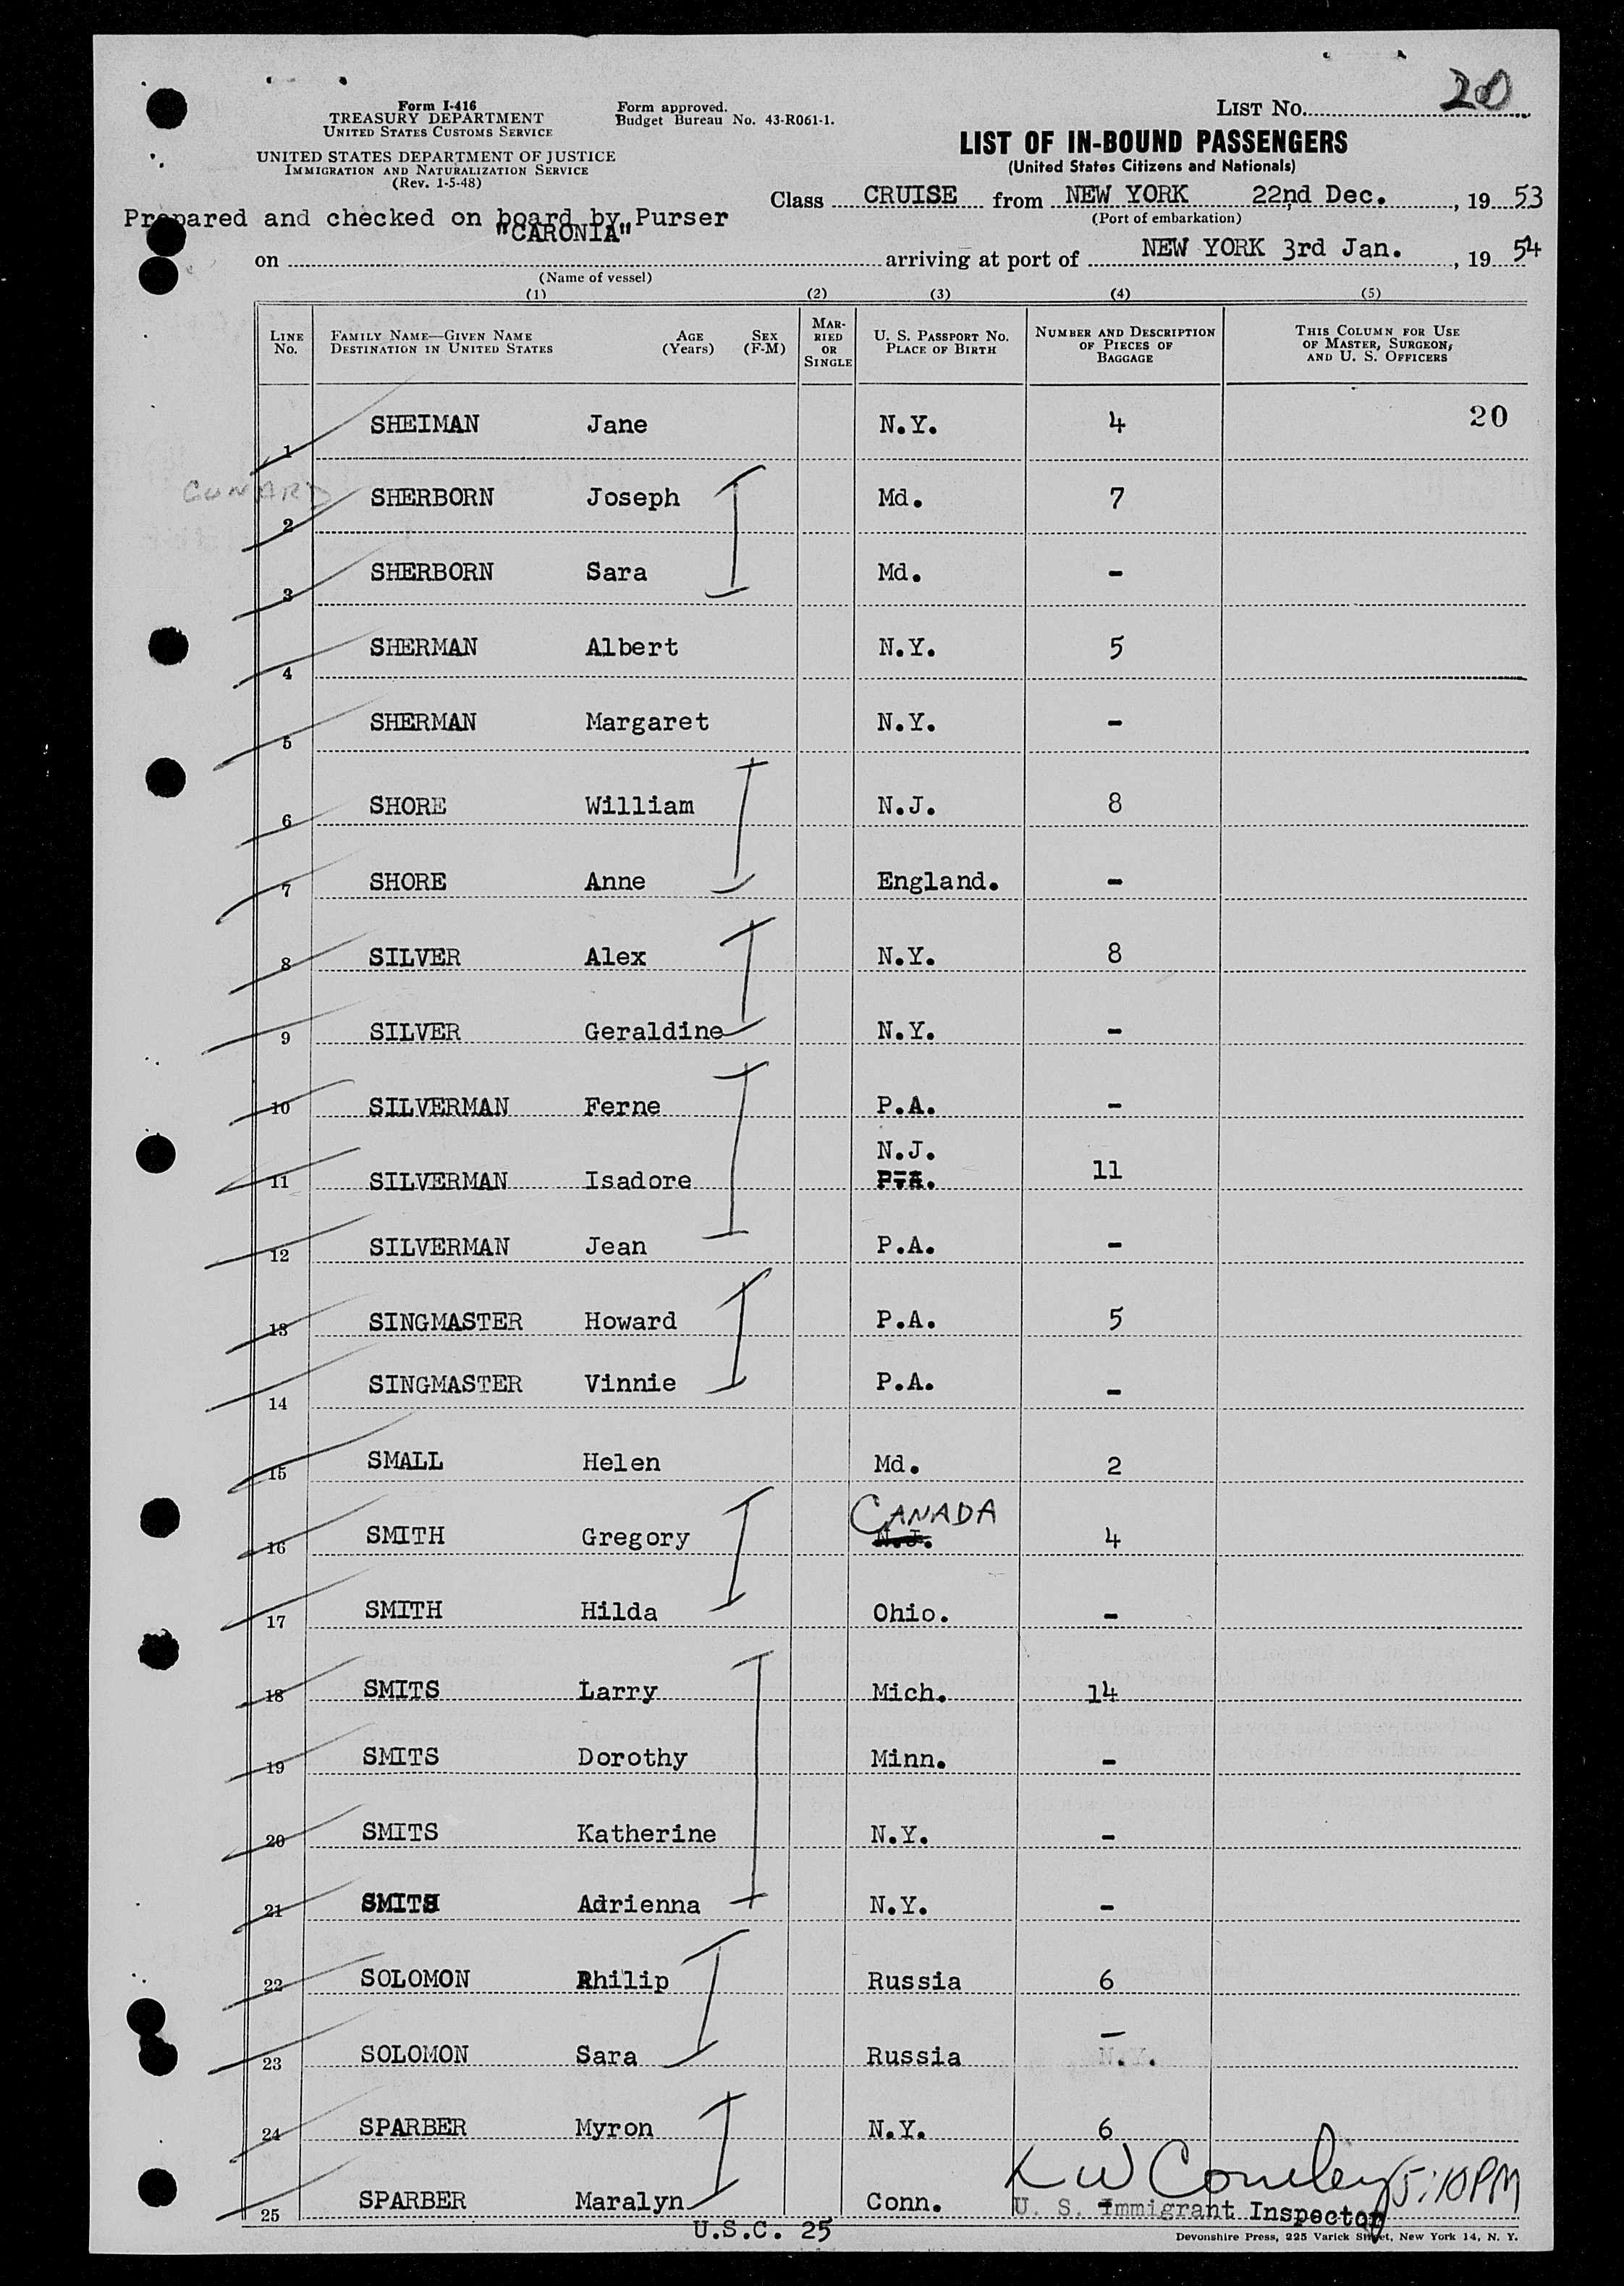 LIST No. 20
Form I-416
TREASURY DEPARTMENT
UNITED STATES CUSTOMS SERVICE
UNITED STATES DEPARTMENT OF JUSTICE
IMMIGRATION AND NATURALIZATION SERVICE
(Rev. 1-5-48)
Form approved.
Budget Bureau No. 43-R061-1.
LIST OF IN-BOUND PASSENGERS
(United States Citizens and Nationals)
Class CRUISE from NEW YORK 22nd Dec., 19 53
(Port of embarkation)
Prepared and checked on board by Purser
on "CARONIA" arriving at port of NEW YORK 3rd Jan., 19 54
(Name of vessel)
(1) (2) (3) (4) (5)
LINE No. FAMILY NAME—GIVEN NAME DESTINATION IN UNITED STATES AGE (Years) SEX (F-M) MARRIED OR SINGLE U. S. PASSPORT NO. PLACE OF BIRTH NUMBER AND DESCRIPTION OF PIECES OF BAGGAGE THIS COLUMN FOR USE OF MASTER, SURGEON, AND U. S. OFFICERS
1 SHEIMAN Jane N.Y. 4 20
CUNARD
2 SHERBORN Joseph Md. 7
3 SHERBORN Sara Md. -
4 SHERMAN Albert N.Y. 5
5 SHERMAN Margaret N.Y. -
6 SHORE William N.J. 8
7 SHORE Anne England. -
8 SILVER Alex N.Y. 8
9 SILVER Geraldine N.Y. -
10 SILVERMAN Ferne P.A. -
N.J.
11 SILVERMAN Isadore P.A. 11
12 SILVERMAN Jean P.A. -
13 SINGMASTER Howard P.A. 5
14 SINGMASTER Vinnie P.A. -
15 SMALL Helen Md. 2
CANADA
16 SMITH Gregory N.J. 4
17 SMITH Hilda Ohio. -
18 SMITS Larry Mich. 14
19 SMITS Dorothy Minn. -
20 SMITS Katherine N.Y. -
21 SMITS Adrienna N.Y. -
22 SOLOMON Philip Russia 6
23 SOLOMON Sara Russia - N.Y.
24 SPARBER Myron N.Y. 6
25 SPARBER Maralyn Conn. -
5:10PM
U. S. Immigrant Inspector
U.S.C. 25
Devonshire Press, 225 Varick Street, New York 14, N. Y.